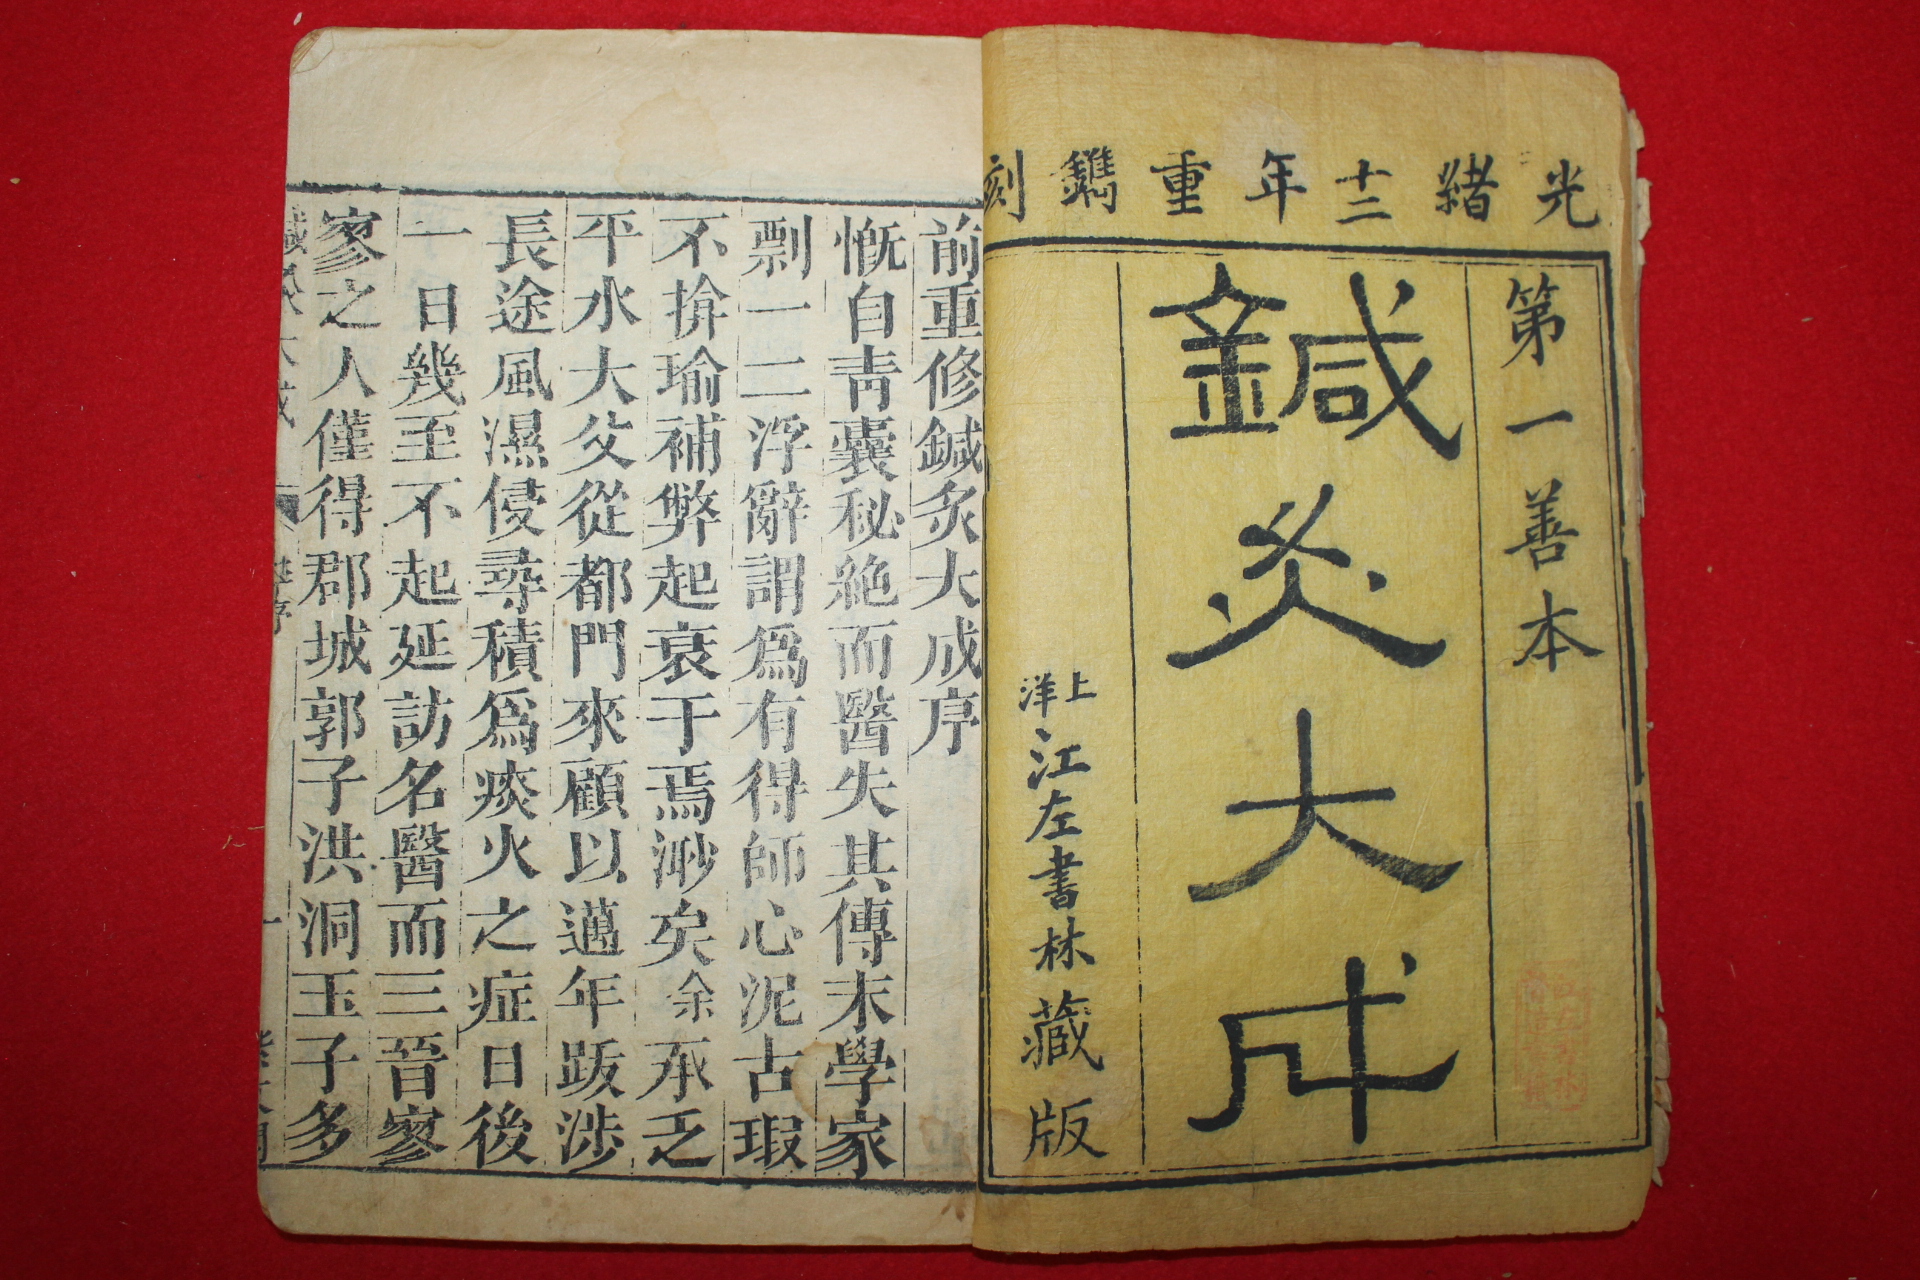 光緒十二年重鐫刻
第一善本
鍼灸大成
上洋江左書林藏版
前重修鍼灸大成序
慨自靑囊秘絶而醫失其傳末學家
剽一二浮辭謂爲有得師心泥古瑕
不揜瑜補弊起衰于焉渺矣余不之
平水大父從都門來顧以邁年跋涉
長途風濕侵尋積爲痰火之症日後
一日幾至不起延訪名醫而三晉寥
寥之人僅得郡城郭子洪洞玉子多